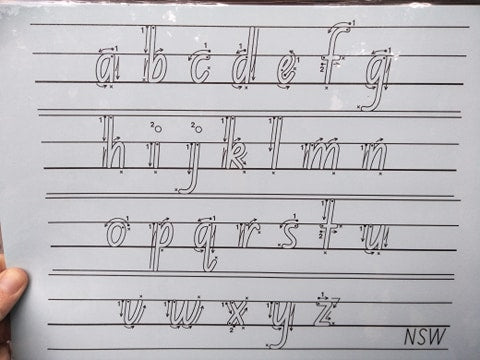 a b c d e f g
h i j k l m n
o p q r s t u
v w x y z
NSW